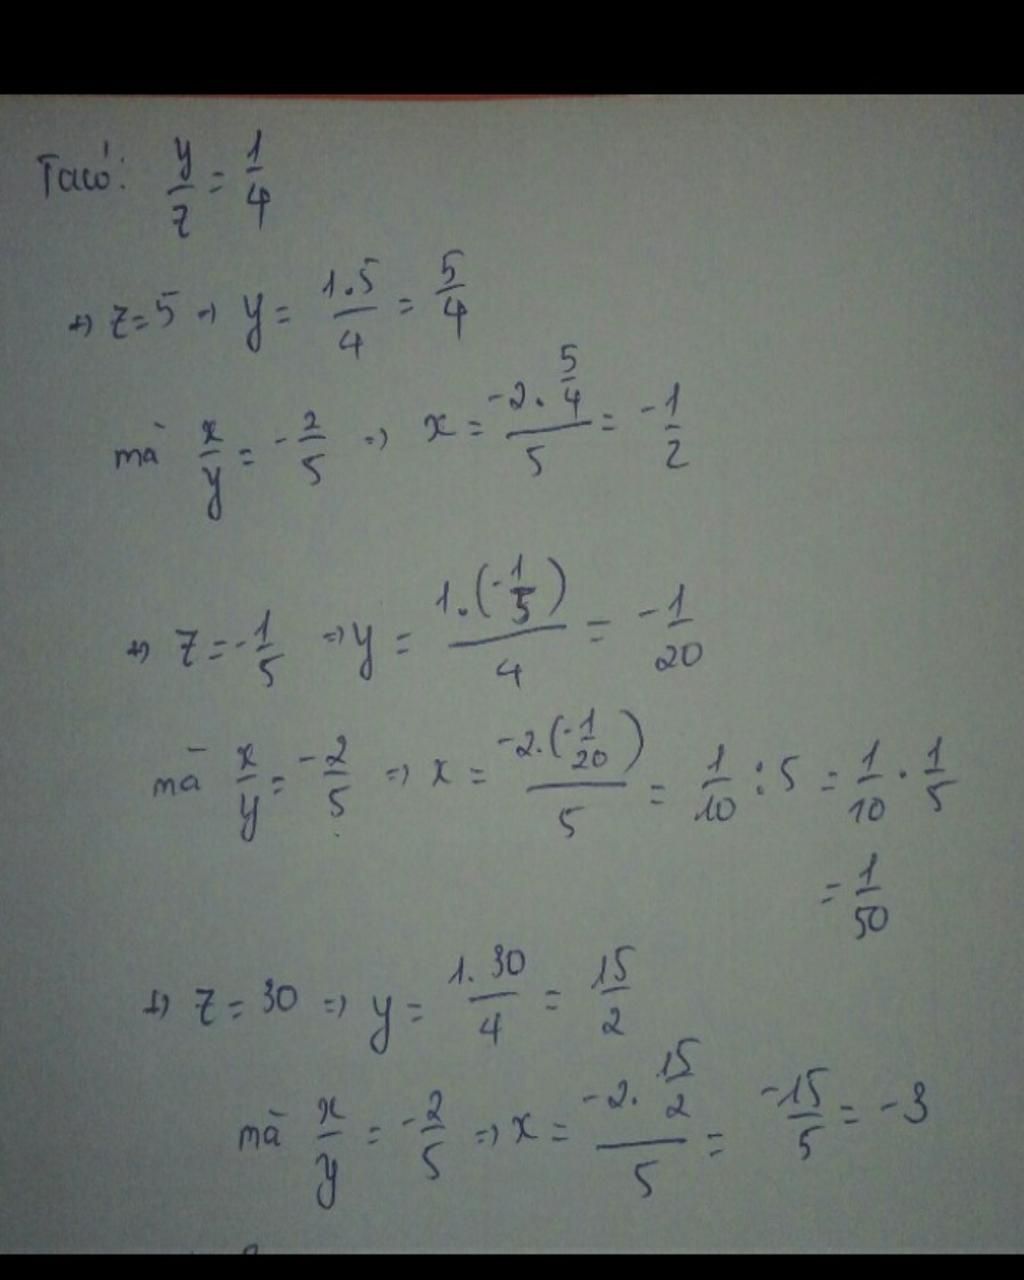 Ta có: y/z = 1/4
+) z = 5 => y = 1.5/4 = 5/4
mà x/y = -2/5 => x = (-2. 5/4)/5 = -1/2
+) z = -1/5 => y = (1.(-1/5))/4 = -1/20
mà x/y = -2/5 => x = (-2.(-1/20))/5 = 1/10 : 5 = 1/10 . 1/5
= 1/50
+) z = 30 => y = 1. 30/4 = 15/2
mà x/y = -2/5 => x = (-2. 15/2)/5 = -15/5 = -3